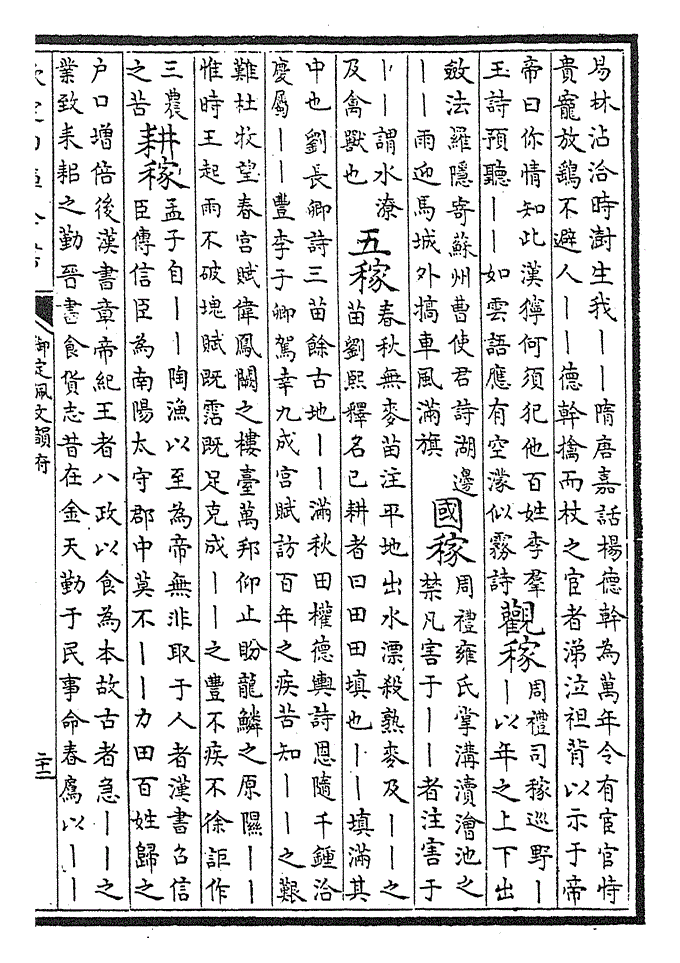 易林沾洽時澍生我丨丨隋唐嘉話楊德幹為萬年令有宦官恃
貴寵放鷂不避人丨丨德幹擒而杖之宦者涕泣袒背以示于帝
帝曰你情知此漢獰何須犯他百姓李羣
玉詩預聽丨丨如雲語應有空濛似霧詩
觀稼
周禮司稼巡野丨
丨以年之上下出
斂法羅隱寄蘇州曹使君詩湖邊
丨丨雨迎馬城外槁車風滿旗
國稼
周禮雍氏掌溝瀆澮池之
禁凡害于丨丨者注害于
丨丨謂水潦
及禽獸也
五稼
春秋無麥苗注平地出水漂殺熟麥及丨丨之
苗劉熙釋名已耕者曰田田填也丨丨填滿其
中也劉長卿詩三苗餘古地丨丨滿秋田權德輿詩恩隨千鍾洽
慶屬丨丨豐李子卿駕幸九成宮賦訪百年之疾苦知丨丨之艱
難杜牧望春宮賦偉鳳闕之樓臺萬邦仰止盼龍鱗之原隰丨丨
惟時王起雨不破塊賦既霑既足克成丨丨之豐不疾不徐詎作
三農
之苦
耕稼
孟子自丨丨陶漁以至為帝無非取于人者漢書召信
臣傳信臣為南陽太守郡中莫不丨丨力田百姓歸之
户口增倍後漢書章帝紀王者八政以食為本故古者急丨丨之
業致耒耜之勤晉書食貨志昔在金天勤于民事命春鳸以丨丨
御定佩文韻府